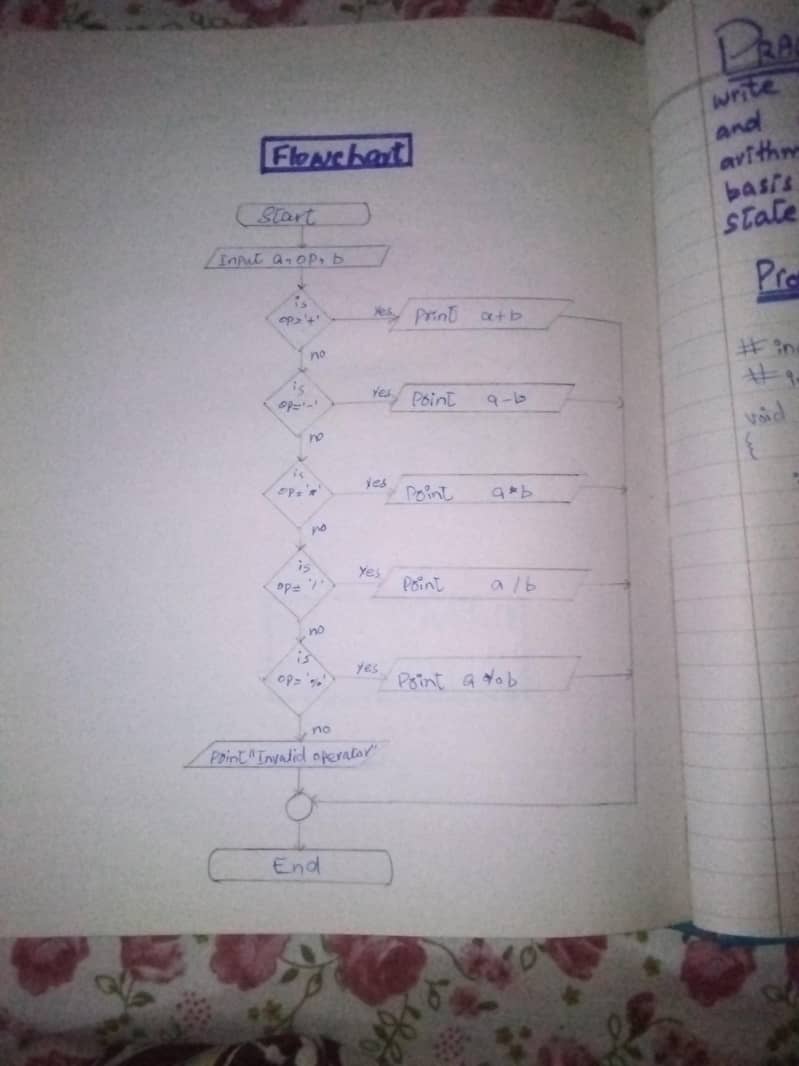 Flowchart
Start
Input a, op, b
is
op='+'
Yes
Print a+b
no
is
op='-'
Yes
Print a-b
no
is
op='*'
Yes
Print a*b
no
is
op='/'
Yes
Print a/b
no
is
op='%'
Yes
Print a%b
no
Print "Invalid operator"
End
write
and
basis
void
{